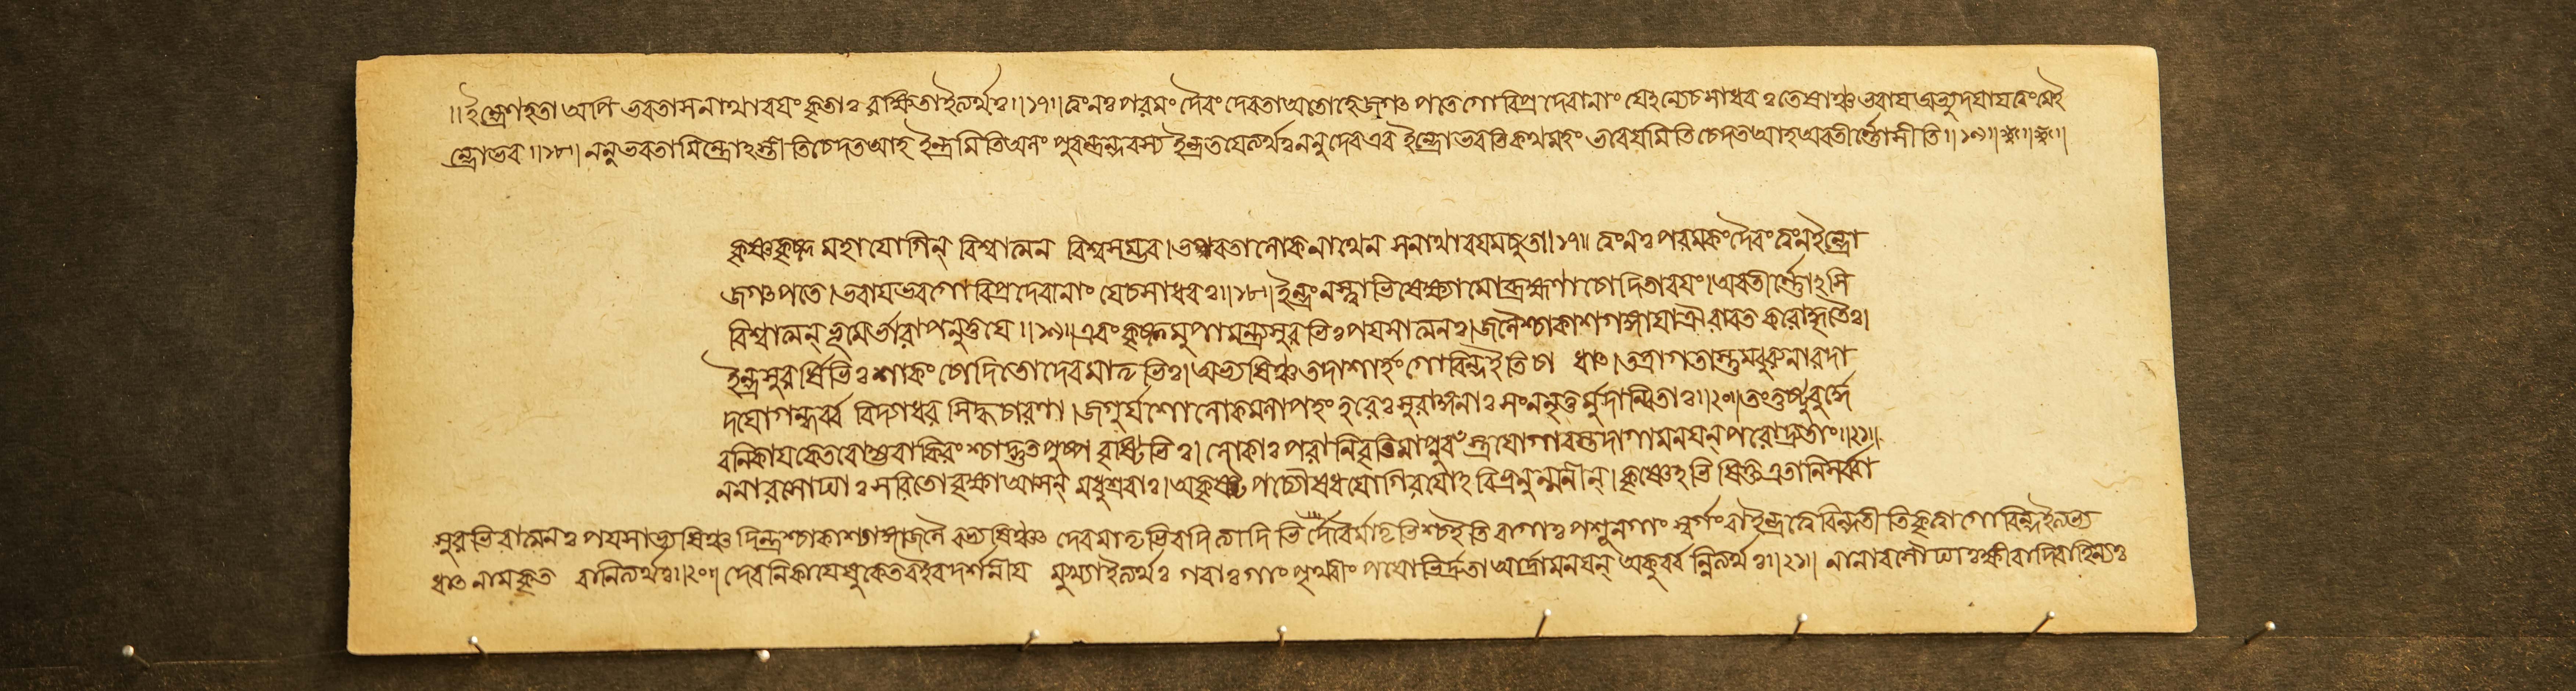 ॥ইন্দ্রেণহতা অপি ভবতাসনাথাবযং কৃতাঃ রক্ষিতাইত্যর্থঃ॥১৭॥ত্বংনঃ পরমং দৈবং দেবতাঅতোহেজগৎ পতেগোবিপ্রদেবানাং যেঽন্যেচসাধবঃ তেষাঞ্চভবাযঅভ্যুদযাযত্বংমেই
ন্দ্রোভব॥১৮॥ ননুভবতামিন্দ্রোঽস্তী তিচেদতআহ ইন্দ্রমিতিঅনং পুরন্দ্রন্দবস্য ইন্দ্রতযেত্যর্থঃননুদেবএব ইন্দ্রোভবতিকথমহং ভবেযমিতিচেদতআহঅবতীর্ণ্ণোসীতি॥১৯॥
কৃষ্ণকৃষ্ণ মহাযোগিন্ বিশ্বাত্মন বিশ্বসম্ভব।ভবতালোকনাথেন সনাথাবযমচ্যুত।১৭॥ ত্বংনঃ পরমকংদৈবংত্বংনইন্দ্রো
জগৎপতে।ভবাযভবগোবিপ্রদেবানাং যেচসাধবঃ॥১৮॥ইন্দ্রংনস্ত্বাভিষেক্ষ্যামোব্রহ্মণাচোদিতাবযং।অবতীর্ণ্ণোঽসি
বিশ্বাত্মন্ ভূমের্ভারাপনুত্তযে॥১৯॥এবংকৃষ্ণমুপামন্ত্র্যসুরভিঃপযসাত্মনঃ।জলৈশ্চাকাশগঙ্গাযাঐরাবতকরোদ্ধৃতৈঃ।
ইন্দ্রসুরর্ষিভিঃ শাকং চোদিতোদেবমাতৃভিঃ।অভ্যষিঞ্চতদাশার্হংগোবিন্দইতিচা ধাৎ।তত্রাগতাস্তুম্বুরুনারদা
দযোগন্ধর্ব্ব বিদ্যাধর সিদ্ধচারণাঃ।জগুর্যশোলোকমলাপহং হরেঃসুরাঙ্গনাঃ সংননৃতুর্মুদান্বিতাঃ॥২০॥তংতুষ্টুবুর্দ্দে
বনিকাযকেতবোহ্যবাকিরং শ্চাদ্ভুতপুষ্প বৃষ্টিভিঃ।লোকাঃ পরানিবৃতিমাপ্নুবঁ স্ত্রযোগাবস্তদাগামনযন্ পযোদ্রুতাং॥২১॥
নানারসৌঘাঃ সরিতোবৃক্ষাআসন্ মধুশ্রবাঃ।অকৃষ্টপচ্যৌষধযোগিরযোঽ বিভ্রনুন্মনীন্।কৃষ্ণেঽভিষিক্তএতানিসর্ব্বা
সুরভিরাত্মনঃ পযসাভ্যষিঞ্চ দিন্দ্রশ্চাকাশগঙ্গাজলৈ রভ্যষিঞ্চ দেবমাতৃভিরদিত্যাদি ভির্দেবৈর্মাতৃভিশ্চইতি বাগাঃ পশুনগাং স্বর্গংবাইন্দ্রত্বেবিন্দতীতিকৃত্বাগোবিন্দইত্যভ্য
ধাৎ নামকৃত বানিত্যর্থঃ॥২০॥ দেবনিকাযেষুকেতবইবদর্শনীয মুখ্যাইত্যর্থঃ গবাঃগাং পৃথ্বীং পযোভির্দ্রুতা আর্দ্রামনযন্ অকুর্ব্ব ন্নিত্যর্থঃ॥২১॥ নানারসৌঘাঃক্ষীরাদিবাহিন্যঃ